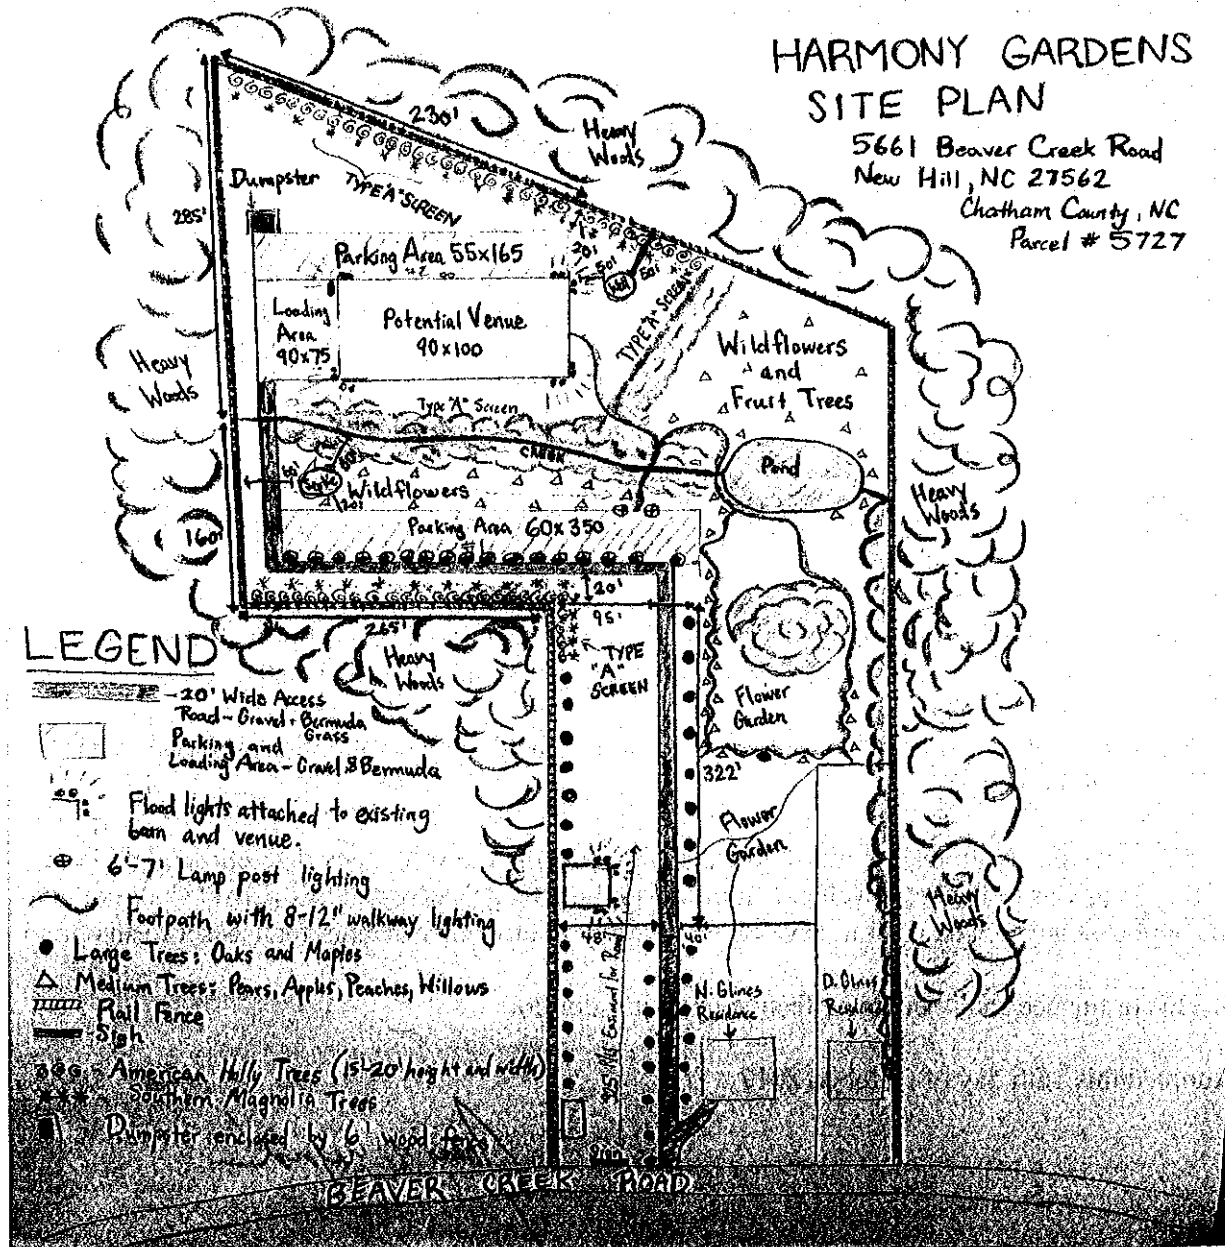 HARMONY GARDENS
SITE PLAN
5661 Beaver Creek Road
New Hill, NC 27562
Chatham County, NC
Parcel # 5727
230'
Heavy
Woods
TYPE "A" SCREEN
Dumpster
285'
Parking Area 55x165
20'
50'
50'
Well
Loading
Area
90x75
Potential Venue
90x100
TYPE "A" SCREEN
Wildflowers
and
Fruit Trees
Heavy
Woods
Type "A" Screen
CREEK
Pond
Wildflowers
Heavy
Woods
Parking Area 60x350
160'
20'
95'
265'
Heavy
Woods
TYPE
"A"
SCREEN
Flower
Garden
322'
Flower
Garden
48'
40'
Heavy
Woods
N. Glines
Residence
D. Glines
Residence
LEGEND
20' Wide Access
Road - Gravel + Bermuda
Grass
Parking and
Loading Area - Gravel & Bermuda
Flood lights attached to existing
barn and venue.
6'-7' Lamp post lighting
Footpath with 8-12" walkway lighting
Large Trees: Oaks and Maples
Medium Trees: Pears, Apples, Peaches, Willows
Rail Fence
Sign
American Holly Trees (15'-20' height and width)
Southern Magnolia Trees
Dumpster enclosed by 6' wood fence
BEAVER CREEK ROAD